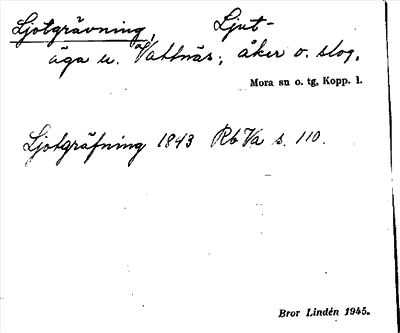 Ljotgrävning, Ljut-
äga u. Vattnäs; åker o. slog.
Mora sn o. tg, Kopp. l.
Ljotgräfning 1843 RbVa s. 110.
Bror Lindén 1945.